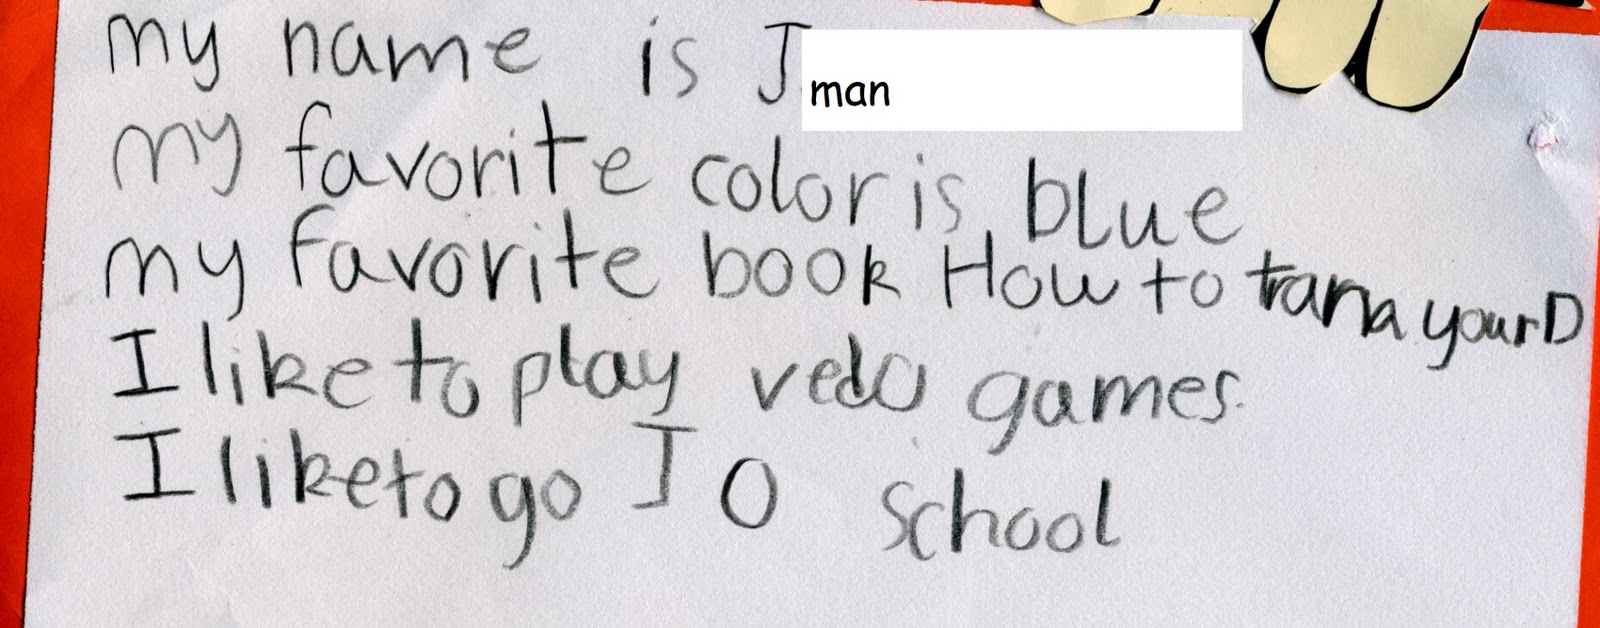 my name is J man
my favorite color is blue
my favorite book How to trana your D
I like to play vedo games.
I like to go J O school